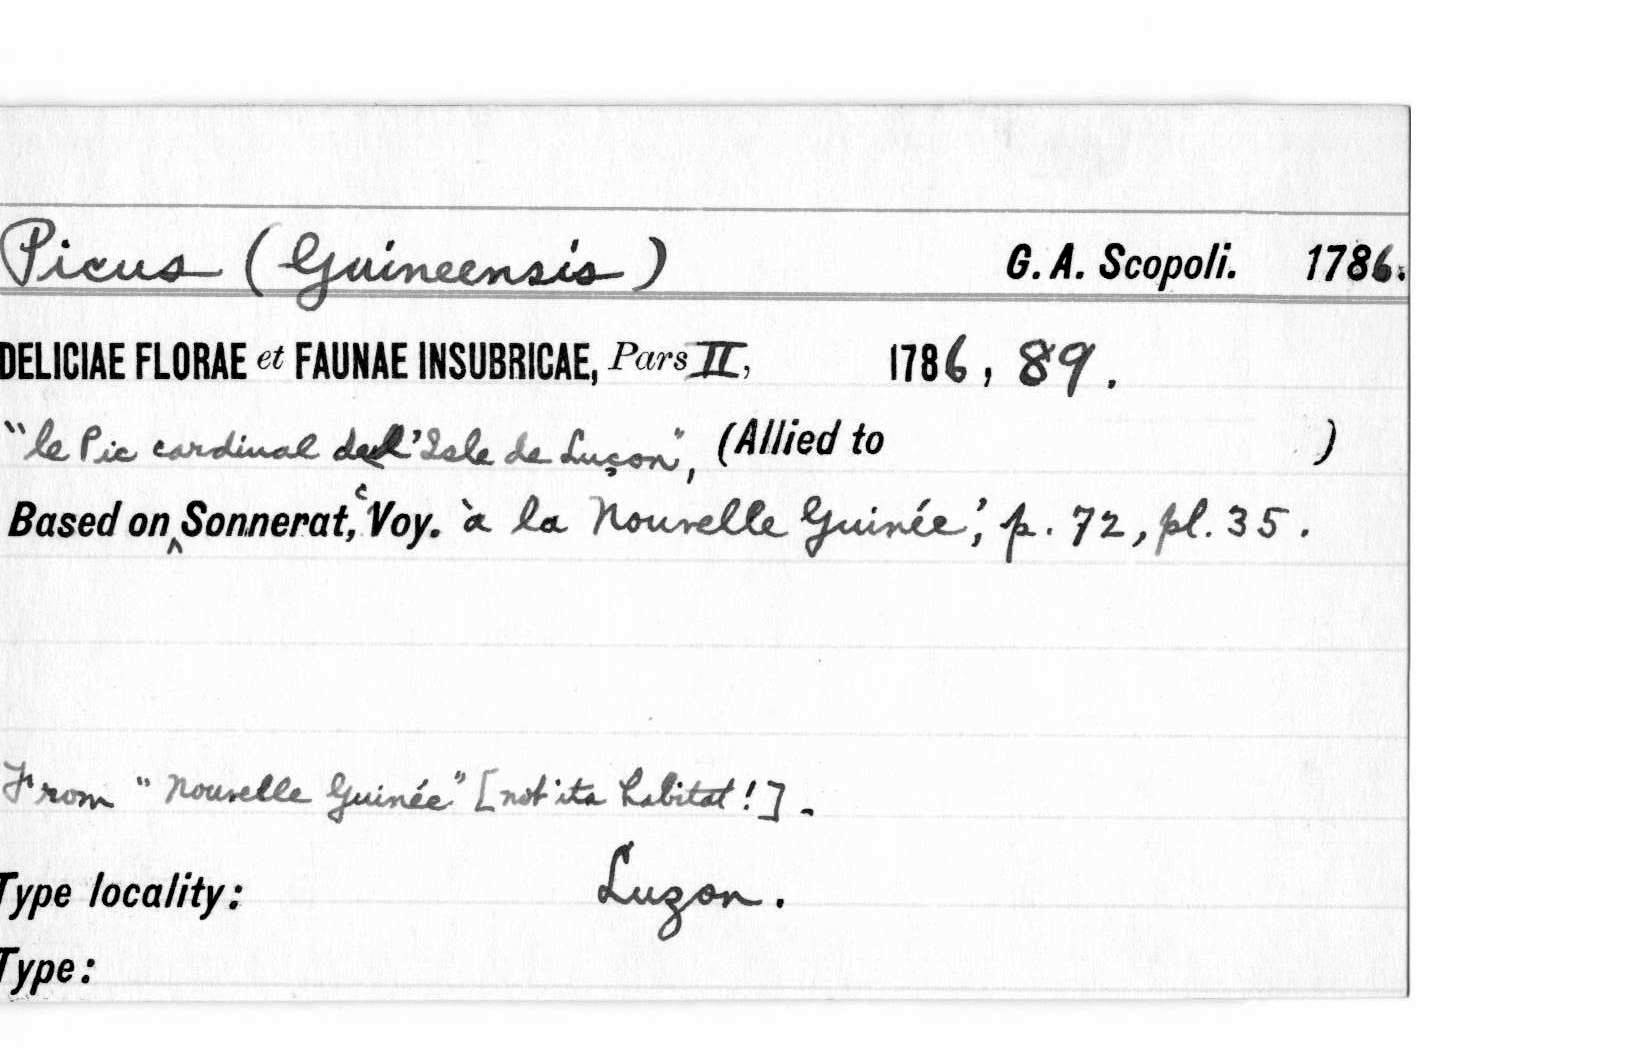 Picus (Guineensis) G. A. Scopoli. 1786.
DELICIAE FLORAE et FAUNAE INSUBRICAE, Pars II, 1786, 89.
"le Pic cardinal de l'Isle de Luçon", (Allied to )
Based on ‸ Sonnerat, 'Voy. à la Nouvelle Guinée', p. 72, pl. 35.
From "Nouvelle Guinée" [not its habitat!].
Type locality: Luzon.
Type: